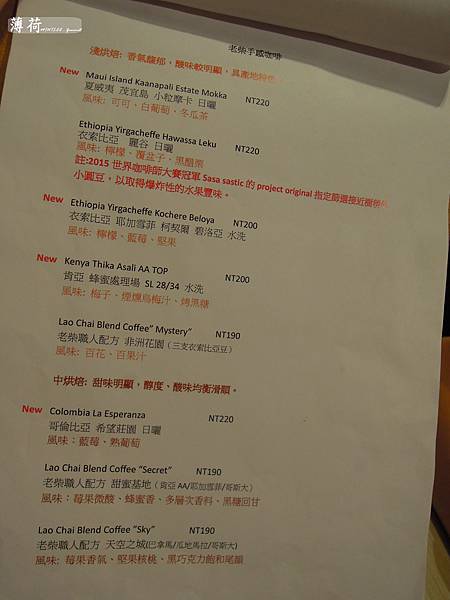 薄荷
老柴手感咖啡
淺烘焙: 香氣馥郁，酸味較明顯，具產地特色
New Maui Island Kaanapali Estate Mokka NT220
夏威夷 茂宜島 小粒摩卡 日曬
風味: 可可、白葡萄、冬瓜茶
Ethiopia Yirgacheffe Hawassa Leku NT220
衣索比亞 麗谷 日曬
風味: 檸檬、覆盆子、黑醋栗
註:2015 世界咖啡師大賽冠軍 Sasa sastic 的 project original 指定篩選接近樹梢的
小圓豆，以取得爆炸性的水果豐味。
New Ethiopia Yirgacheffe Kochere Beloya NT200
衣索比亞 耶加雪菲 柯契爾 碧洛亞 水洗
風味: 檸檬、藍莓、堅果
New Kenya Thika Asali AA TOP NT200
肯亞 蜂蜜處理場 SL 28/34 水洗
風味: 梅子、煙燻烏梅汁、烤黑糖
Lao Chai Blend Coffee" Mystery" NT190
老柴職人配方 非洲花園（三支衣索比亞豆）
風味: 百花、百果汁
中烘焙: 甜味明顯，醇度、酸味均衡滑順。
New Colombia La Esperanza NT220
哥倫比亞 希望莊園 日曬
風味：藍莓、熟葡萄
Lao Chai Blend Coffee "Secret" NT190
老柴職人配方 甜蜜基地（肯亞 AA/耶加雪菲/哥斯大）
風味：莓果微酸、蜂蜜香、多層次香料、黑糖回甘
Lao Chai Blend Coffee "Sky" NT190
老柴職人配方 天空之城(巴拿馬/瓜地馬拉/哥斯大)
風味: 莓果香氣、堅果核桃、黑巧克力飽和尾韻